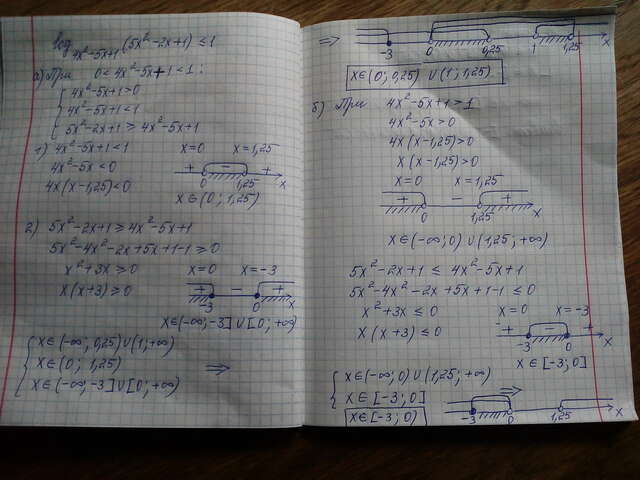 log₄ₓ²₋₅ₓ₊₁ (5x²-2x+1) ≤ 1
а) При 0 < 4x²-5x+1 < 1 :
{ 4x²-5x+1>0
4x²-5x+1<1
5x²-2x+1 ≥ 4x²-5x+1
1) 4x²-5x+1<1
4x²-5x<0
4x(x-1,25)<0
x=0 x=1,25
+ - +
0 1,25 x
x∈(0; 1,25)
2) 5x²-2x+1 ≥ 4x²-5x+1
5x²-4x²-2x+5x+1-1 ≥ 0
x²+3x ≥ 0
x(x+3) ≥ 0
x=0 x=-3
+ - +
-3 0 x
x∈(-∞; -3] ∪ [0; +∞)
{ x∈(-∞; 0,25) ∪ (1; +∞)
x∈(0; 1,25)
x∈(-∞; -3] ∪ [0; +∞)
⇒
⇒
-3 0 0,25 1 1,25 x
x∈(0; 0,25) ∪ (1; 1,25)
б) При 4x²-5x+1>1
4x²-5x>0
4x(x-1,25)>0
x(x-1,25)>0
x=0 x=1,25
+ - +
0 1,25 x
x∈(-∞; 0) ∪ (1,25; +∞)
5x²-2x+1 ≤ 4x²-5x+1
5x²-4x²-2x+5x+1-1 ≤ 0
x²+3x ≤ 0
x(x+3) ≤ 0
x=0 x=-3
+ - +
-3 0 x
x∈[-3; 0]
{ x∈(-∞; 0) ∪ (1,25; +∞)
x∈[-3; 0]
⇒
x∈[-3; 0)
-3 0 1,25 x